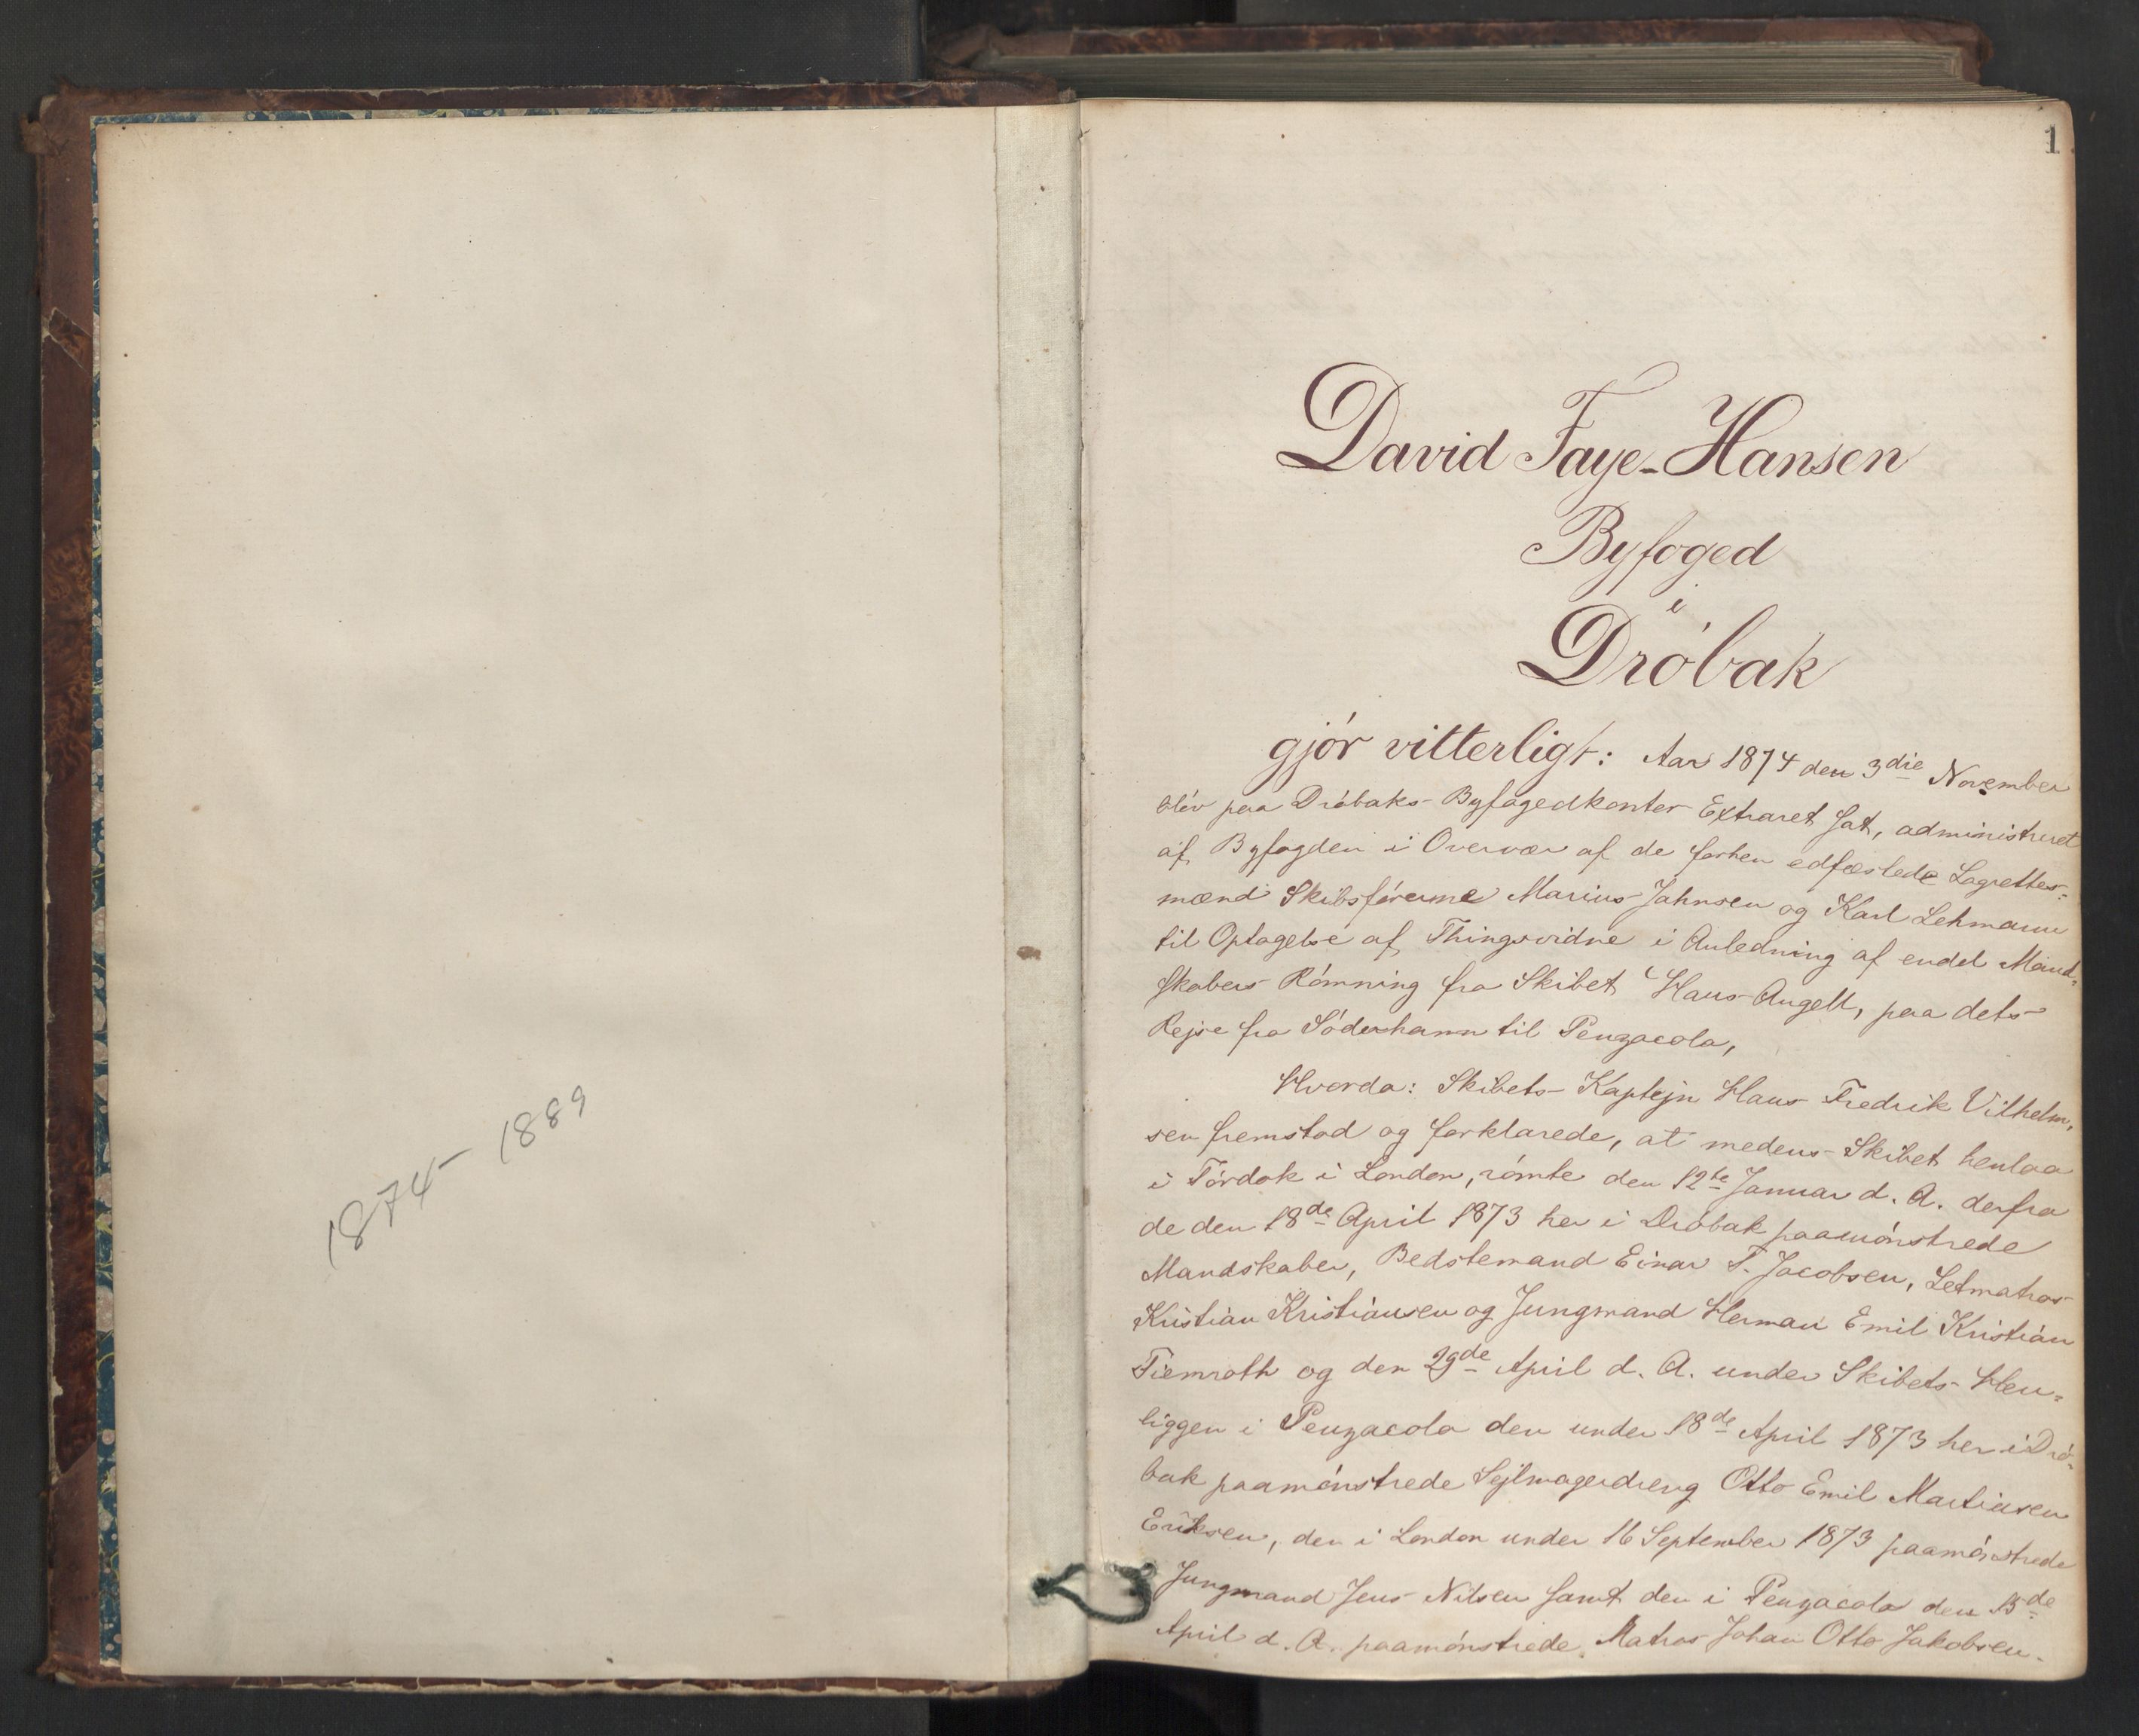 1874 - 1889
1
David Faye-Hansen
Byfoged
i
Dróbak
gjór vitterligt: Aar 1874 den 3die November
blév paa Dróbaks Byfogedkontor Extraret sat, administreret
af Byfogden i Overvær af de forhen edfæstede Lagrettes-
mænd Skibsfórerne Marius Jahnsen og Karl Lehmann
til Optagelse af Thingsvidne i Anledning af endel Mand-
skabers Rómning fra Skibet Hans Angell, paa dets
Rejse fra Sóderhamn til Penzacola,
Hvorda: Skibets Kaptejn Hans Fredrik Vilhelm-
sen fremstod og forklarede, at medens Skibet henlaa
i Tórdok i London, rómte den 12te Januar d. A. derfra
de den 18de April 1873 her i Dróbak paamónstrede
Mandskaber, Bedstemand Einar T. Jacobsen, Letmatros
Kristian Kristiansen og Jungmand Herman Emil Kristian
Tiemroth og den 29de April d. A. under Skibets Hen-
liggen i Penzacola den under 18de April 1873 her i Dró-
bak paamónstrede Sejlmagerdreng Otto Emil Martinsen
Eriksen, den i London under 16 September 1873 paamónstrede
Jungmand Jens Nilsen samt den i Penzacola den 15de
April d. A. paamónstrede Matros Johan Otto Jakobsen.